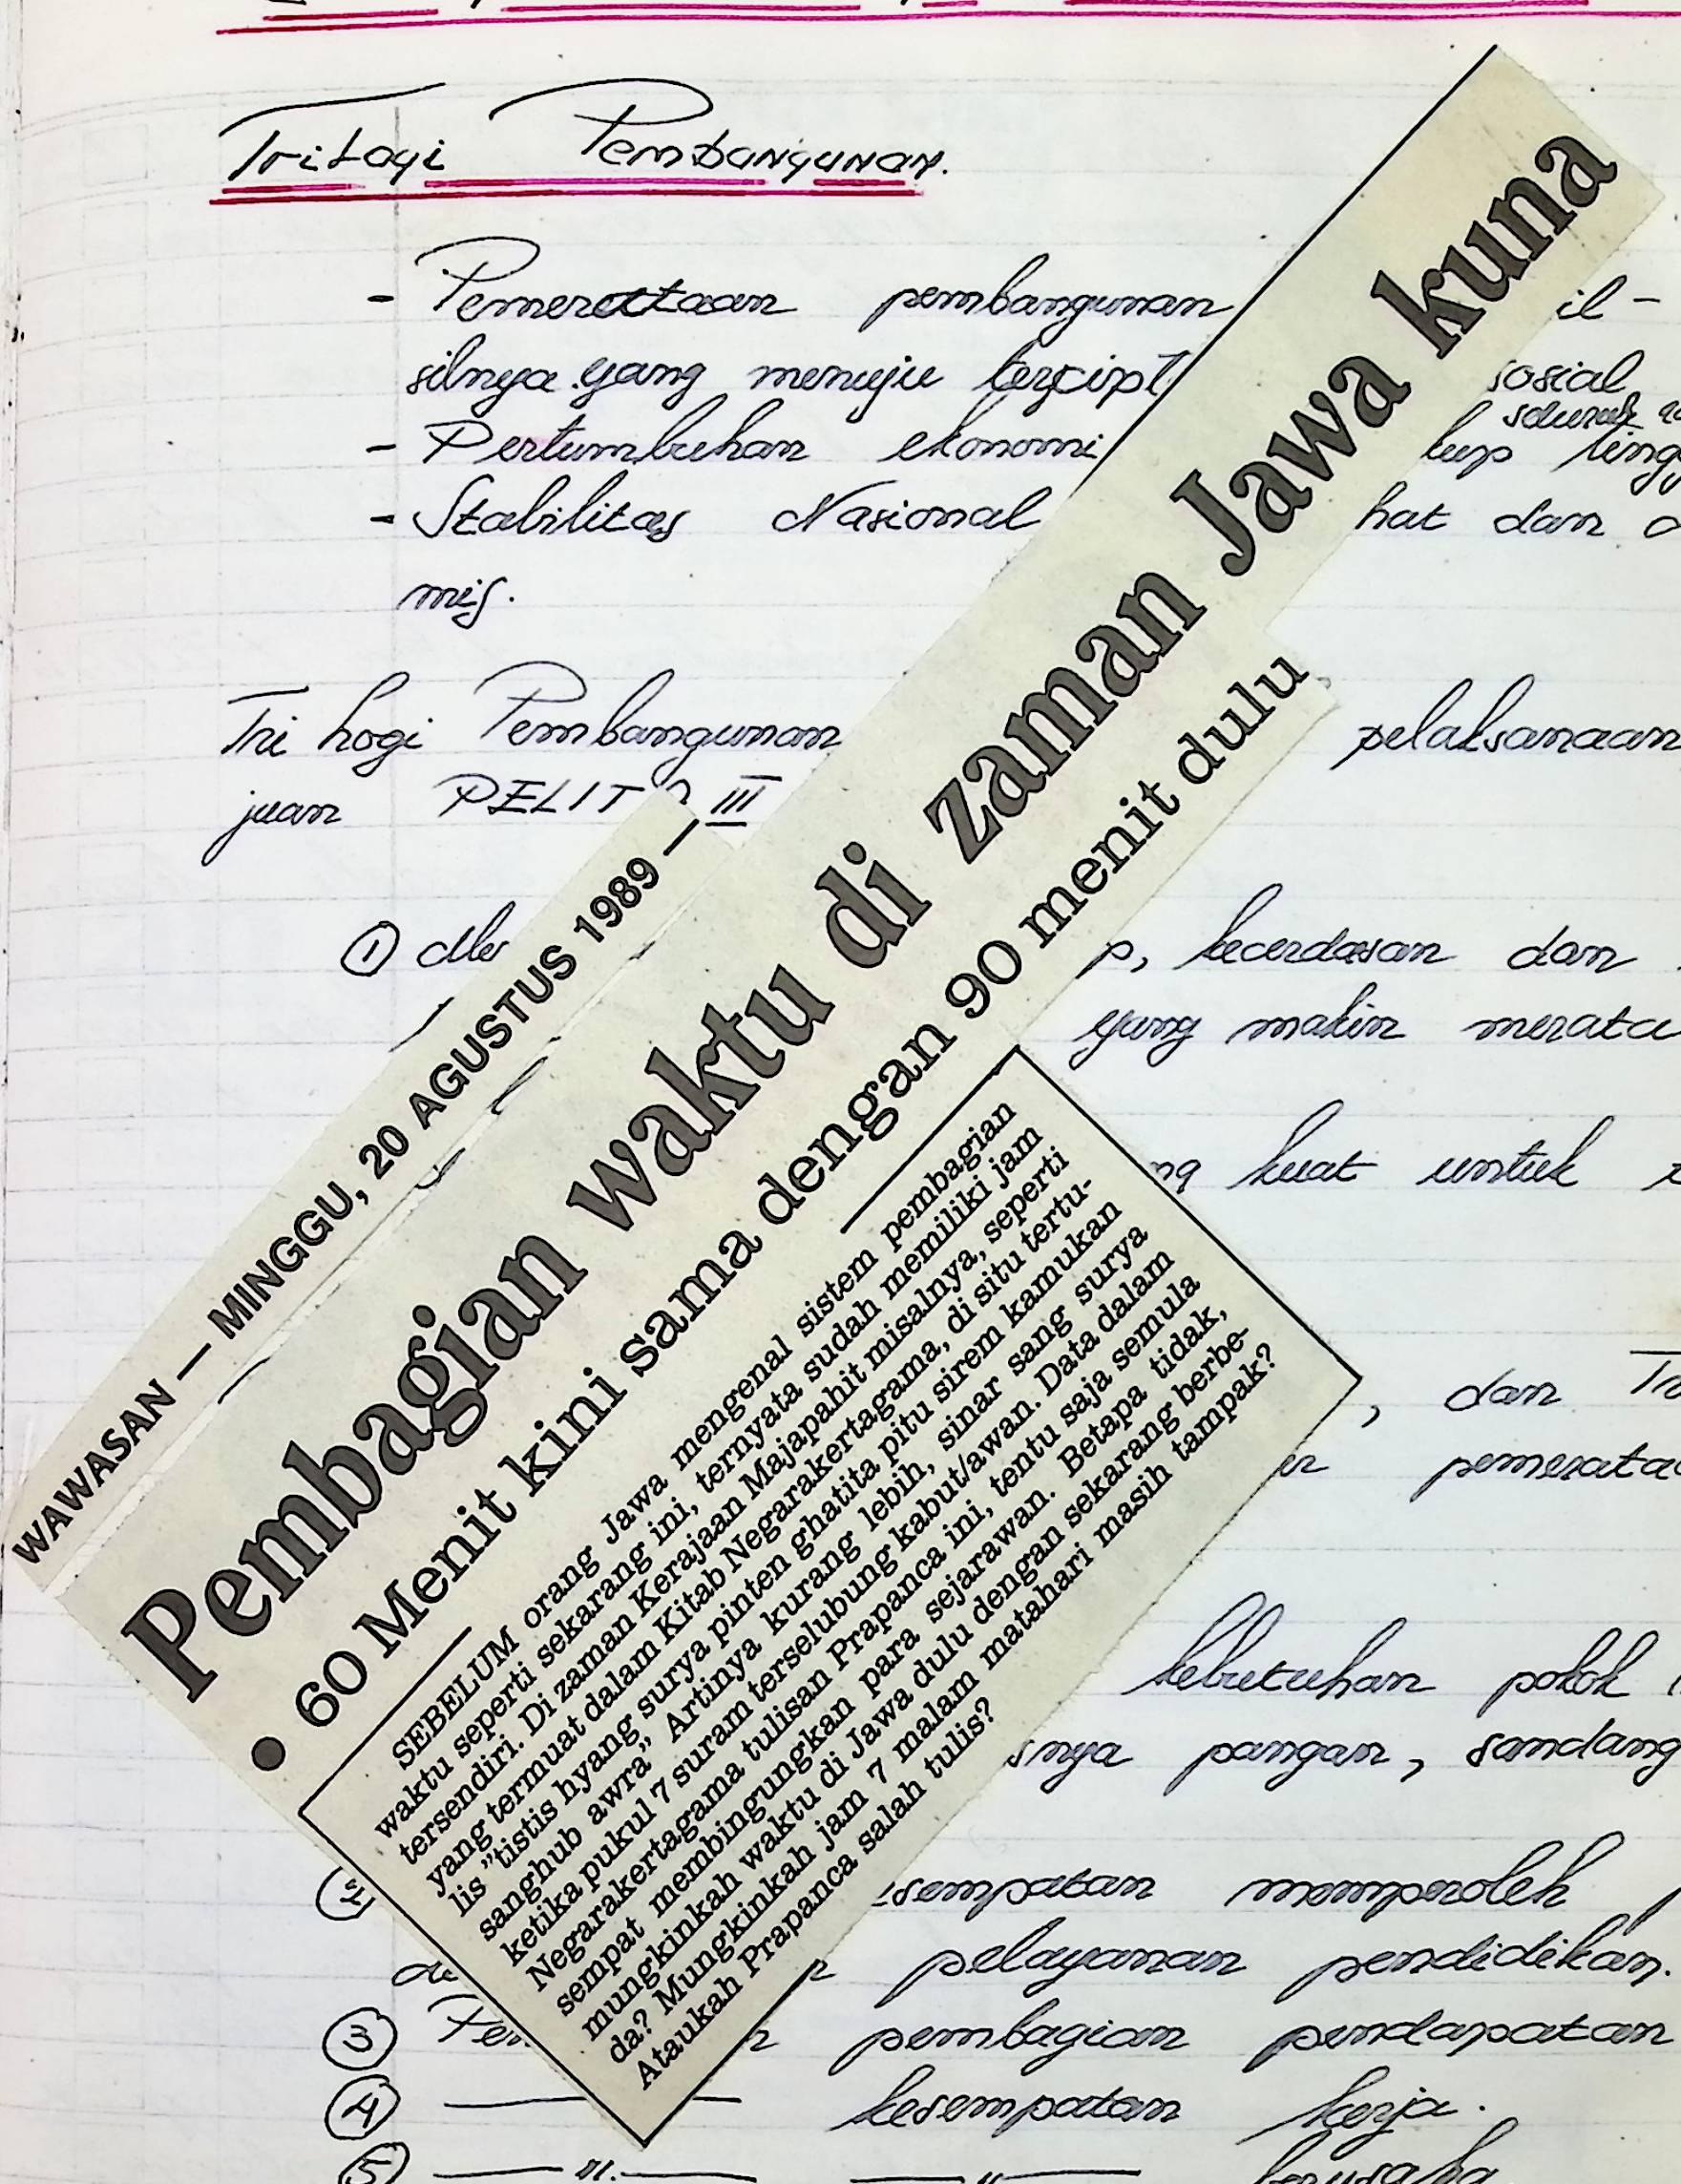 TriLogi Pembangunan.
- Pemerattaan pembangunan il-
silnya yang menuju tercipt sosial
- Pertumbuhan ekonomi kup
- Stabilitas Nasional hat dan
mis.
Tri Logi Pembangunan pelaksanaan
juan PELIT III
① p, kecerdasan dan
yang makin merata
kuat untuk
, dan
pemerata
kebutuhan pokok
snya pangan, sandang
sempatan memperoleh
pelayanan pendidikan.
③ Pem pembagian pendapatan
④ kesempatan kerja.
⑤ — " — — " — berusaha
WAWASAN — MINGGU, 20 AGUSTUS 1989 —
Pembagian waktu di zaman Jawa kuna
• 60 Menit kini sama dengan 90 menit dulu
SEBELUM orang Jawa mengenal sistem pembagian
waktu seperti sekarang ini, ternyata sudah memiliki jam
tersendiri. Di zaman Kerajaan Majapahit misalnya, seperti
yang termuat dalam Kitab Negarakertagama, di situ tertu-
lis "tistis hyang surya pinten ghatita pitu sirem kamukan
sanghub awra" Artinya kurang lebih, sinar sang surya
ketika pukul 7 suram terselubung kabut/awan. Data dalam
Negarakertagama tulisan Prapanca ini, tentu saja semula
sempat membingungkan para sejarawan. Betapa tidak,
mungkinkah waktu di Jawa dulu dengan sekarang berbe-
da? Mungkinkah jam 7 malam matahari masih tampak?
Ataukah Prapanca salah tulis?